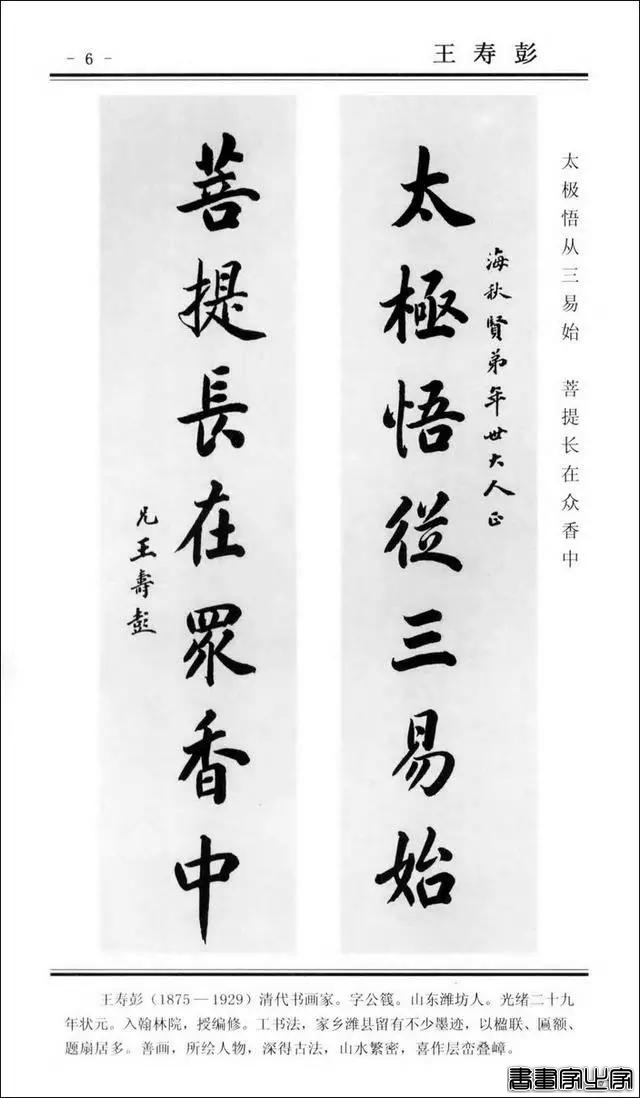 - 6 -
王寿彭
太极悟从三易始　菩提长在众香中
海秋賢弟年世大人正
太極悟從三易始
菩提長在眾香中
兄王壽彭
王寿彭（1875－1929）清代书画家。字公篯。山东潍坊人。光绪二十九
年状元。入翰林院，授编修。工书法，家乡潍县留有不少墨迹，以楹联、匾额、
题扇居多。善画，所绘人物，深得古法，山水繁密，喜作层峦叠嶂。
書畫家必家